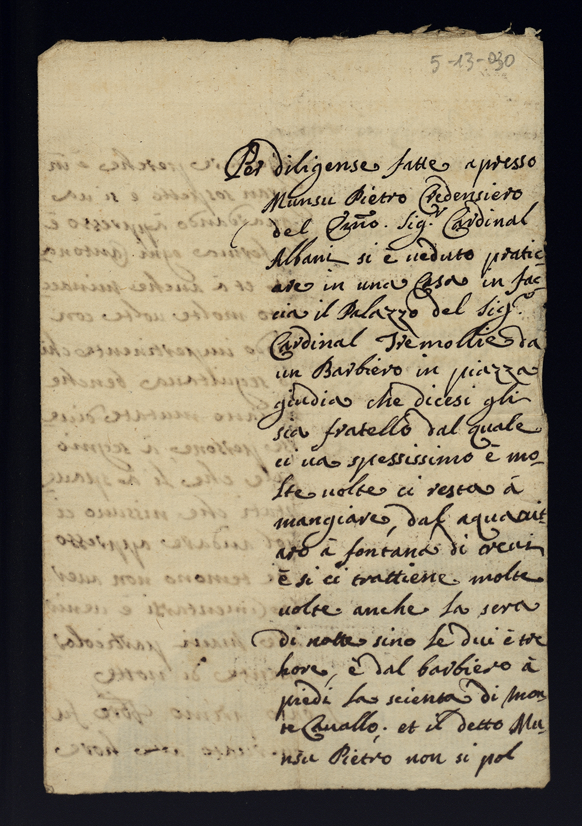 5-13-030
Per diligense fatte apresso
Munsu Pietro Credensiero
del Emo. Sigr Cardinal
Albani si è veduto pratic
are in una Casa in fac
cia il Palazzo del Sigr
Cardinal Tremollie da
un Barbiero in piazza
giudia che dicesi gli
sia fratello dal quale
ci va spessissimo è mo-
lte volte ci resta à
mangiare, dal aquavit
aro à fontana di trevi
è si ci trattiene molte
volte anche la sera
di notte sino le dui è tre
hore, è dal barbiero à
piedi la scienta di mon
te Cavallo; et il detto Mu-
nsu Pietro non si pol